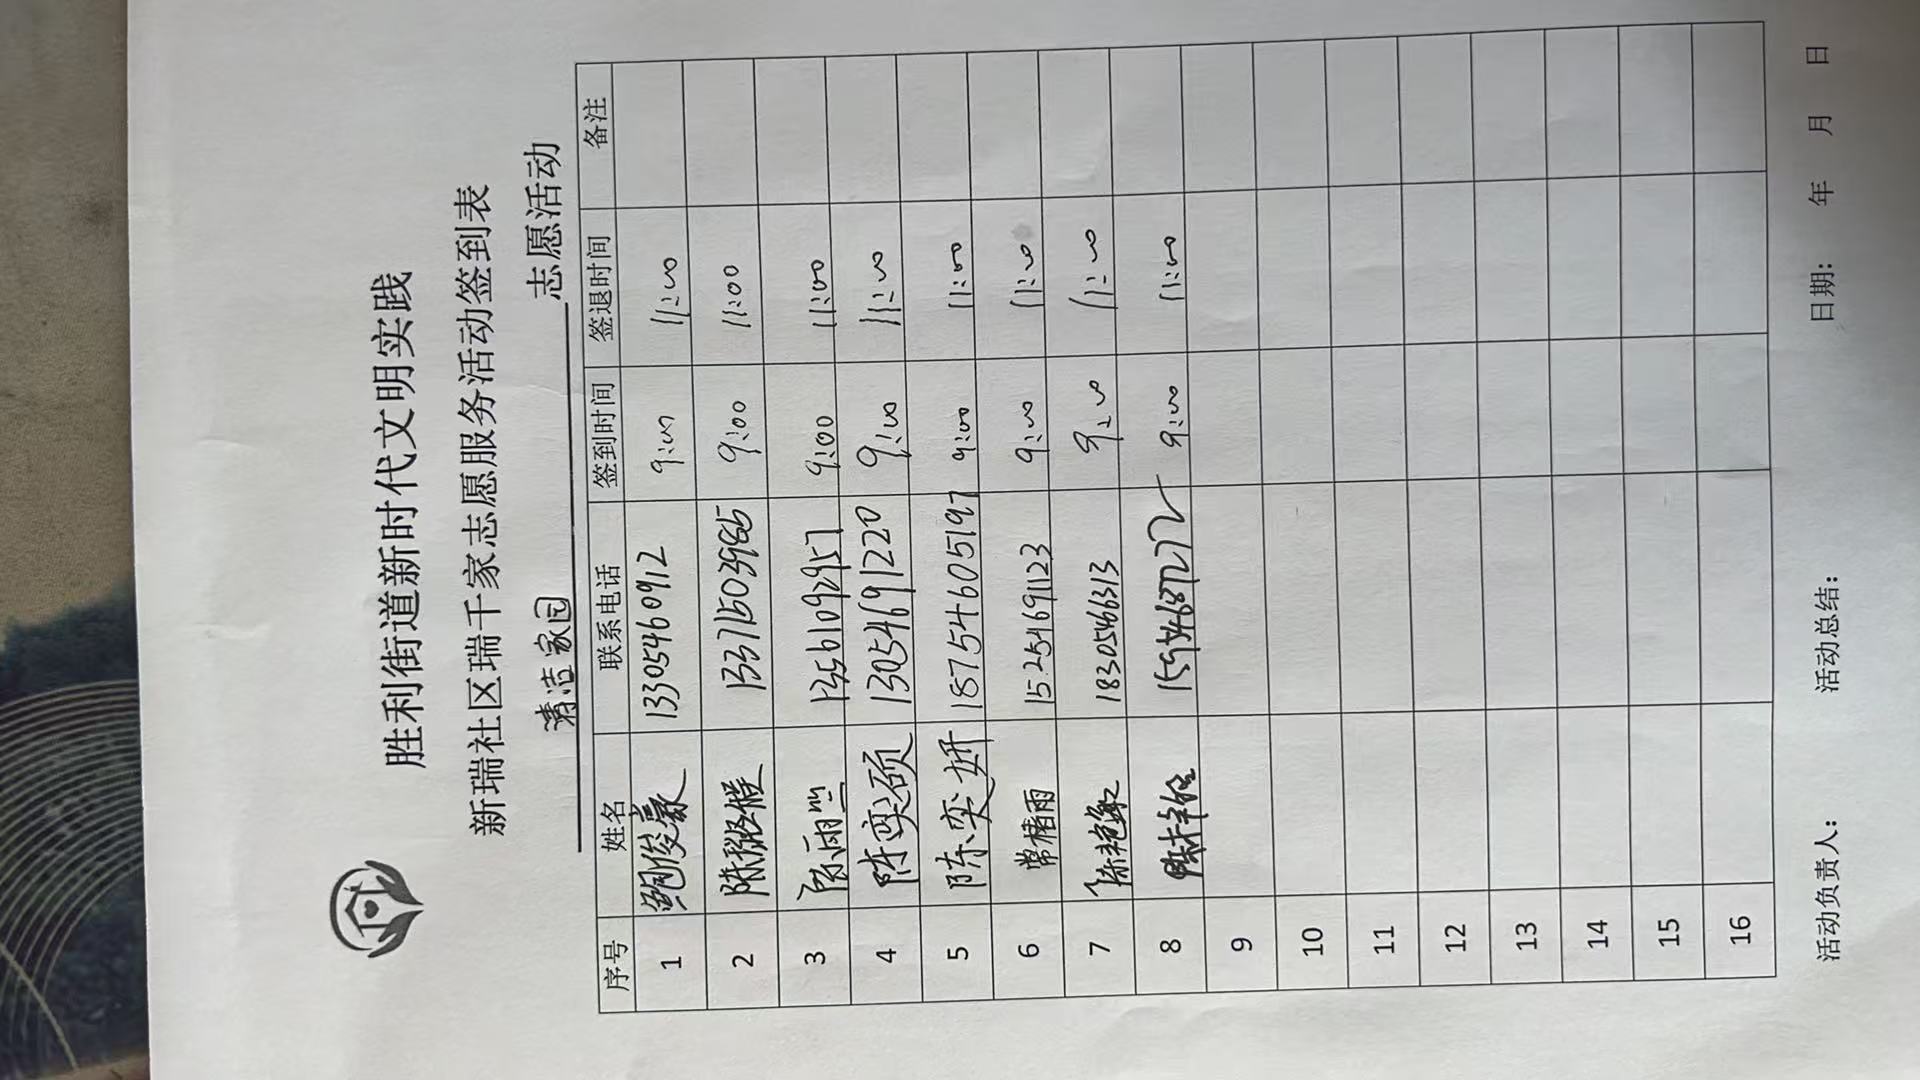 胜利街道新时代文明实践
新瑞社区瑞千家志愿服务活动签到表
清洁家园 志愿活动
序号 姓名 联系电话 签到时间 签退时间 备注
1 鲍俊豪 13305460912 9:00 11:00
2 陈 9:00 11:00
3 陈雨 13561092957 9:00 11:00
4 陈奕硕 13054691220 9:00 11:00
5 陈奕妍 18754605197 9:00 11:00
6 常楮雨 15254691123 9:00 11:00
7 18305466313 9:00 11:00
8 陈 9:00 11:00
9
10
11
12
13
14
15
16
活动负责人： 活动总结： 日期： 年 月 日